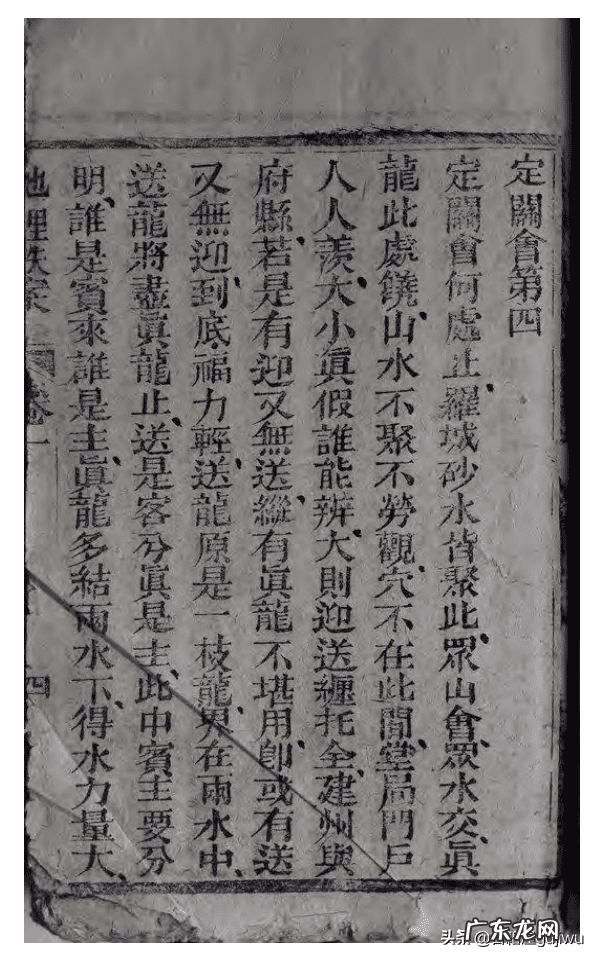 定關會第四
定關會何處止、羅城砂水皆聚此、眾山會、眾水交、眞
龍此處饒、山水不聚不勞觀、穴不在此間、堂局門戶
人人羨、大小眞假誰能辨、大則迎送纏托全、建州與
府縣、若是有迎又無送、縱有眞龍不堪用、卽或有送
又無迎、到底福力輕、送龍原是一枝龍、界在兩水中、
送龍將盡眞龍止、送是客兮眞是主、此中賓主要分
明、誰是賓來誰是主、眞龍多結兩水下、得水力量大、
地理 卷一
四
广东龙网
头条